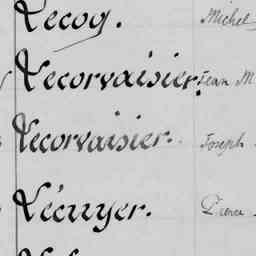 Lecoq. Michel
Lecorvaisier. Jean M
Lecorvaisier. Joseph
Lécuyer. Pierre